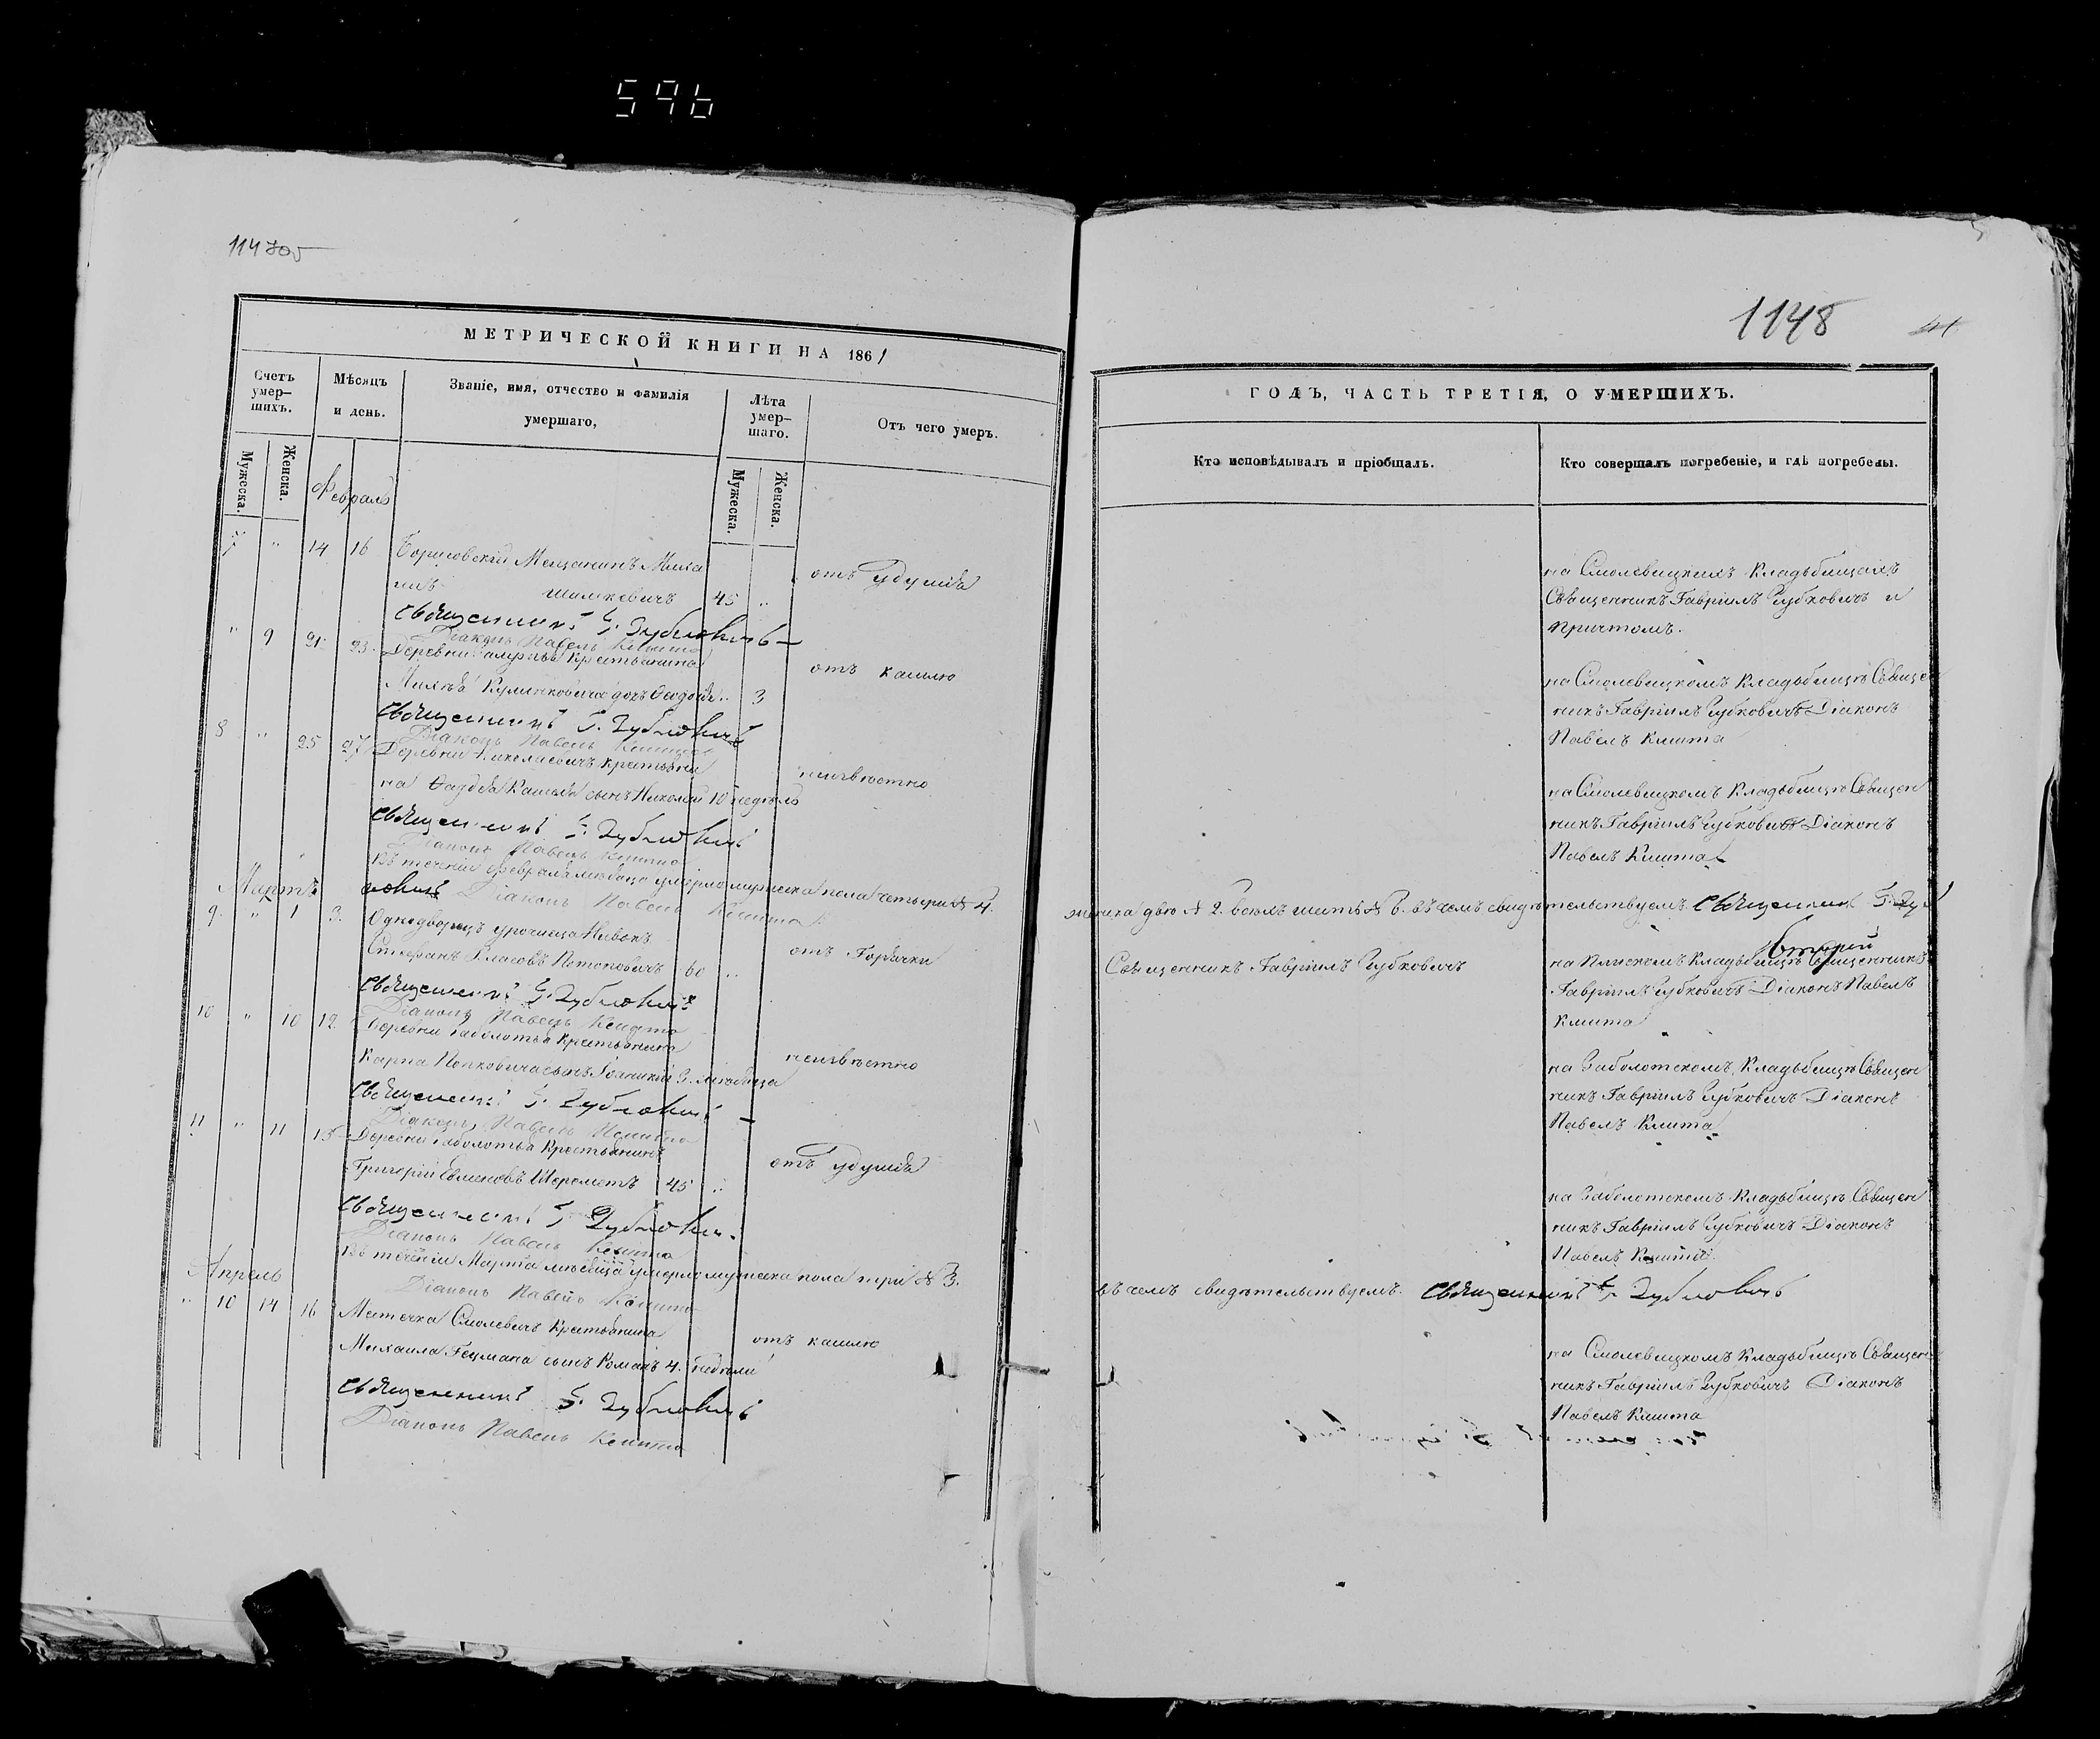 596
114
1148
МЕТРИЧЕСКОЙ КНИГИ НА 1861
Счетъ умер-шихъ.
Мѣсяцъ и день.
Званіе, имя, отчество и фамилія умершаго,
Лѣта умер-шаго.
Отъ чего умеръ.
Мужеска.
Женска.
Мужеска.
Женска.
Февраль
7 " 14 16 Борисовскій Мещанинъ Миха
илъ Шимкевичъ 45 " отъ удушья
Священникъ Г. Зубковичъ
Діаконъ Павелъ Кмита
" 9 21 23 Деревни Крестьянина
дочь Ѳеодосія " 3 отъ кашлю
Священникъ Г. Зубковичъ
Діаконъ Павелъ Кмита
8 " 25 27 Деревни Крестьяни
на сынъ Николай 10 недѣль неизвѣстно
Священникъ Г. Зубковичъ
Діаконъ Павелъ Кмита
Въ теченіи Февраля мѣсяца умерло мужеска пола четыре № 4.
Діаконъ Павелъ Кмита
Мартъ
9. " 1 3. Однодворецъ урочища Нивокъ
Стефанъ 60 " отъ Горячки
Священникъ Г. Зубковичъ
Діаконъ Павелъ Кмита
10 " 10 12 Деревни Заболотья Крестьянина
Карпа сынъ 3. мѣсяца неизвѣстно
Священникъ Г. Зубковичъ
Діаконъ Павелъ Кмита
11 " 11 13 Деревни Заболотья Крестьянинъ
Григорій Шереметъ 45 " отъ удушья
Священникъ Г. Зубковичъ
Діаконъ Павелъ Кмита
Въ теченіи Марта мѣсяца умерло мужеска пола три № 3.
Діаконъ Павелъ Кмита
Апрель
" 10 14 16 Местечка Смолевичъ Крестьянина
Михаила Гецмана сынъ Романъ 4. недѣли отъ кашлю
Священникъ Г. Зубковичъ
Діаконъ Павелъ Кмита
ГОДЪ, ЧАСТЬ ТРЕТІЯ, О УМЕРШИХЪ.
Кто исповѣдывалъ и пріобщалъ.
Кто совершалъ погребеніе, и гдѣ погребены.
на Смолевицкихъ Кладьбищахъ
Священникъ Гавріилъ Зубковичъ и
причтомъ.
на Смолевицкомъ Кладьбищѣ Священ
никъ Гавріилъ Зубковичъ Діаконъ
Павелъ Кмита
на Смолевицкомъ Кладьбищѣ Священ
никъ Гавріилъ Зубковичъ Діаконъ
Павелъ Кмита
женска двѣ № 2. всѣхъ шесть № 6. въ чемъ свидѣтельствуемъ. Священникъ Г. Зуб
Священникъ Гавріилъ Зубковичъ
на Кладьбищѣ Священникъ
Гавріилъ Зубковичъ Діаконъ Павелъ
Кмита
на Заболотскомъ Кладьбищѣ Священ
никъ Гавріилъ Зубковичъ Діаконъ
Павелъ Кмита
на Заболотскомъ Кладьбищѣ Священ
никъ Гавріилъ Зубковичъ Діаконъ
Павелъ Кмита
въ чемъ свидѣтельствуемъ. Священникъ Г. Зубковичъ
на Смолевицкомъ Кладьбищѣ Священ
никъ Гавріилъ Зубковичъ Діаконъ
Павелъ Кмита